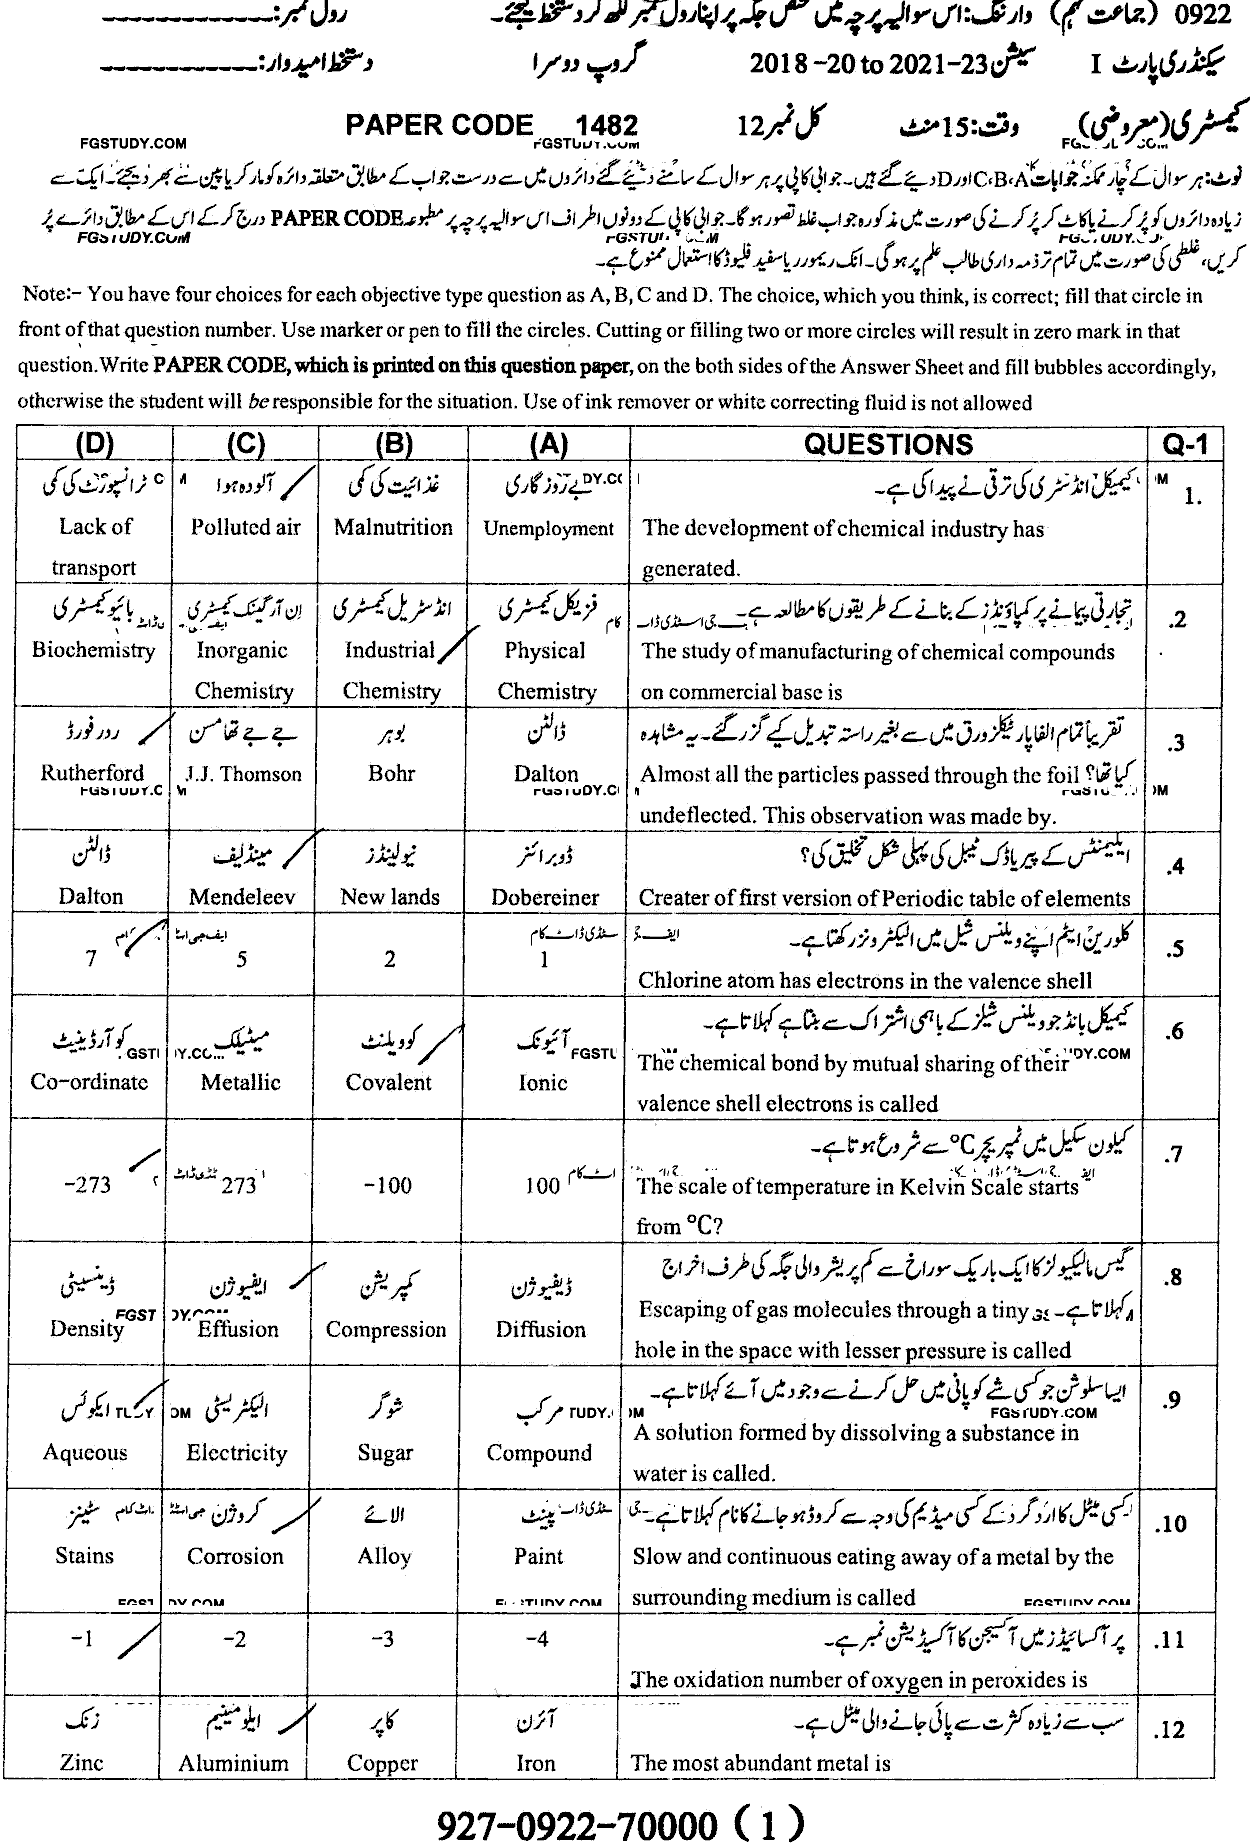 0922 (جماعت نہم) وارننگ: اس سوالیہ پرچہ میں مختص جگہ پر اپنا رول نمبر لکھ کر دستخط کیجئے۔ رول نمبر:
سیکنڈری پارٹ I سیشن 2018-20 to 2021-23 گروپ دوسرا دستخط امیدوار:
کیمسٹری (معروضی) وقت: 15 منٹ کل نمبر 12 PAPER CODE 1482
FGSTUDY.COM FGSTUDY.COM
نوٹ: ہر سوال کے چار ممکنہ جوابات A، B، C اور D دیئے گئے ہیں۔ جوابی کاپی پر ہر سوال کے سامنے دیئے گئے دائروں میں سے درست جواب کے مطابق متعلقہ دائرہ کو مارکر یا پین سے بھر دیجئے۔ ایک سے
زیادہ دائروں کو پُر کرنے یا کاٹ کر پُر کرنے کی صورت میں مذکورہ جواب غلط تصور ہوگا۔ جوابی کاپی کے دونوں اطراف اس سوالیہ پرچہ پر مطبوعہ PAPER CODE درج کر کے اس کے مطابق دائرے پُر
FGSTUDY.COM
کریں، غلطی کی صورت میں تمام تر ذمہ داری طالب علم پر ہوگی۔ انک ریموور یا سفید فلیوڈ کا استعمال ممنوع ہے۔
Note:- You have four choices for each objective type question as A, B, C and D. The choice, which you think, is correct; fill that circle in
front of that question number. Use marker or pen to fill the circles. Cutting or filling two or more circles will result in zero mark in that
question. Write PAPER CODE, which is printed on this question paper, on the both sides of the Answer Sheet and fill bubbles accordingly,
otherwise the student will be responsible for the situation. Use of ink remover or white correcting fluid is not allowed
(D) (C) (B) (A) QUESTIONS Q-1
ٹرانسپورٹ کی کمی آلودہ ہوا غذائیت کی کمی بے روزگاری کیمیکل انڈسٹری کی ترقی نے پیدا کی ہے۔ 1.
Lack of Polluted air Malnutrition Unemployment The development of chemical industry has
transport generated.
بائیو کیمسٹری ان آرگینک کیمسٹری انڈسٹریل کیمسٹری فزیکل کیمسٹری تجارتی پیمانے پر کمپاؤنڈز کے بنانے کے طریقوں کا مطالعہ ہے۔ .2
Biochemistry Inorganic Industrial Physical The study of manufacturing of chemical compounds
Chemistry Chemistry Chemistry on commercial base is
ردرفورڈ جے جے تھامسن بوہر ڈالٹن تقریباً تمام الفا پارٹیکلز ورق میں سے بغیر راستہ تبدیل کیے گزر گئے۔ یہ مشاہدہ .3
Rutherford J.J. Thomson Bohr Dalton Almost all the particles passed through the foil کیا تھا؟
undeflected. This observation was made by.
ڈالٹن مینڈلیف نیولینڈز ڈوبرائنر ایلیمنٹس کے پیریاڈک ٹیبل کی پہلی شکل تخلیق کی؟ .4
Dalton Mendeleev New lands Dobereiner Creater of first version of Periodic table of elements
کلورین ایٹم اپنے ویلنس شیل میں الیکٹرونز رکھتا ہے۔ .5
7 5 2 1 Chlorine atom has electrons in the valence shell
کوآرڈینیٹ میٹیلک کوویلنٹ آئیونک کیمیکل بانڈ جو ویلنس شیلز کے باہمی اشتراک سے بنتا ہے کہلاتا ہے۔ .6
Co-ordinate Metallic Covalent Ionic The chemical bond by mutual sharing of their
valence shell electrons is called
کیلون سکیل میں ٹمپریچر °C سے شروع ہوتا ہے۔ .7
-273 273 -100 100 The scale of temperature in Kelvin Scale starts
from °C?
ڈینسیٹی ایفیوژن کمپریشن ڈیفیوژن گیس مالیکیولز کا ایک باریک سوراخ سے کم پریشر والی جگہ کی طرف اخراج .8
Density Effusion Compression Diffusion Escaping of gas molecules through a tiny کہلاتا ہے۔
hole in the space with lesser pressure is called
ایکوئس الیکٹریسٹی شوگر مرکب ایسا سلوشن جو کسی شے کو پانی میں حل کرنے سے وجود میں آئے کہلاتا ہے۔ .9
FGSTUDY.COM
Aqueous Electricity Sugar Compound A solution formed by dissolving a substance in
water is called.
سٹینز کروژن الائے پینٹ کسی میٹل کا اردگرد کے کسی میڈیم کی وجہ سے کروڈ ہو جانے کا نام کہلاتا ہے۔ .10
Stains Corrosion Alloy Paint Slow and continuous eating away of a metal by the
surrounding medium is called
FGSTUDY.COM
-1 -2 -3 -4 پر آکسائیڈز میں آکسیجن کا آکسیڈیشن نمبر ہے۔ .11
The oxidation number of oxygen in peroxides is
زنک ایلومینیم کاپر آئرن سب سے زیادہ کثرت سے پائی جانے والی میٹل ہے۔ .12
Zinc Aluminium Copper Iron The most abundant metal is
927-0922-70000 (1)